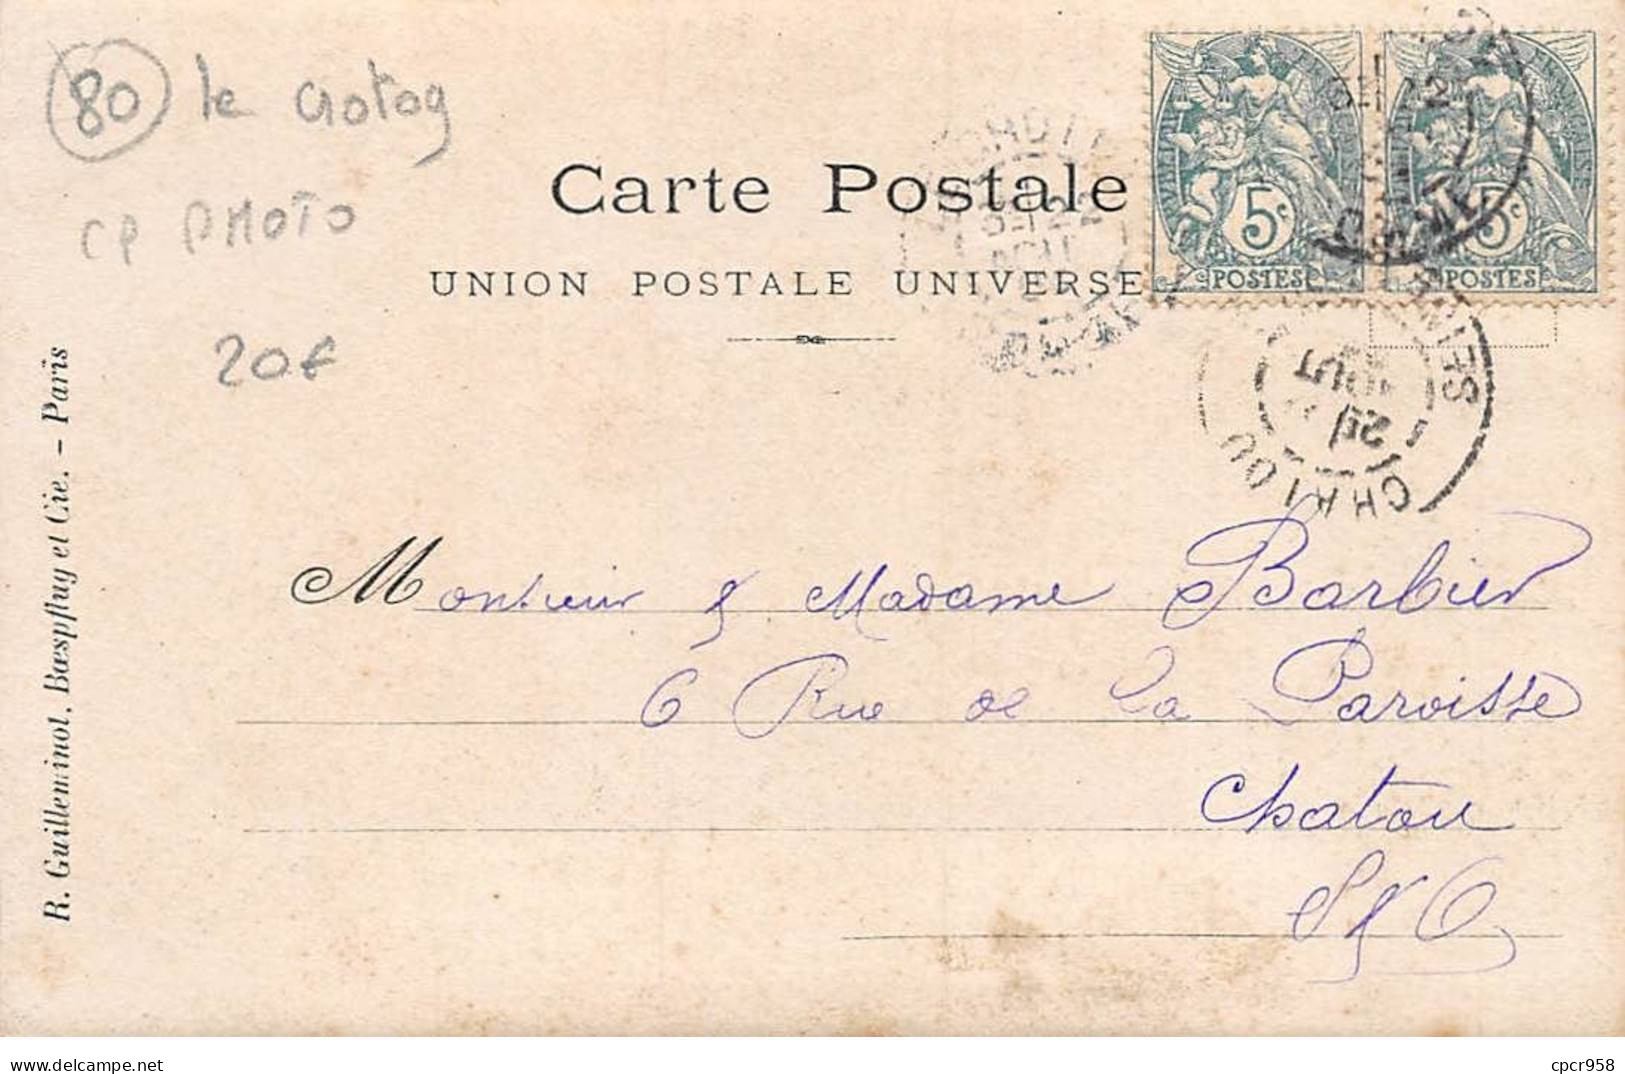 80 le crotoy
CP PHOTO
20€
Carte Postale
UNION POSTALE UNIVERSE
5c
POSTES
5c
POSTES
CHATOU
SEINE
25
AOUT
R. Guilleminot, Bœspflug et Cie. - Paris
Monsieur & Madame Barbier
6 Rue de la Paroisse
Chatou
S & O
delcampe.net
cpcr958